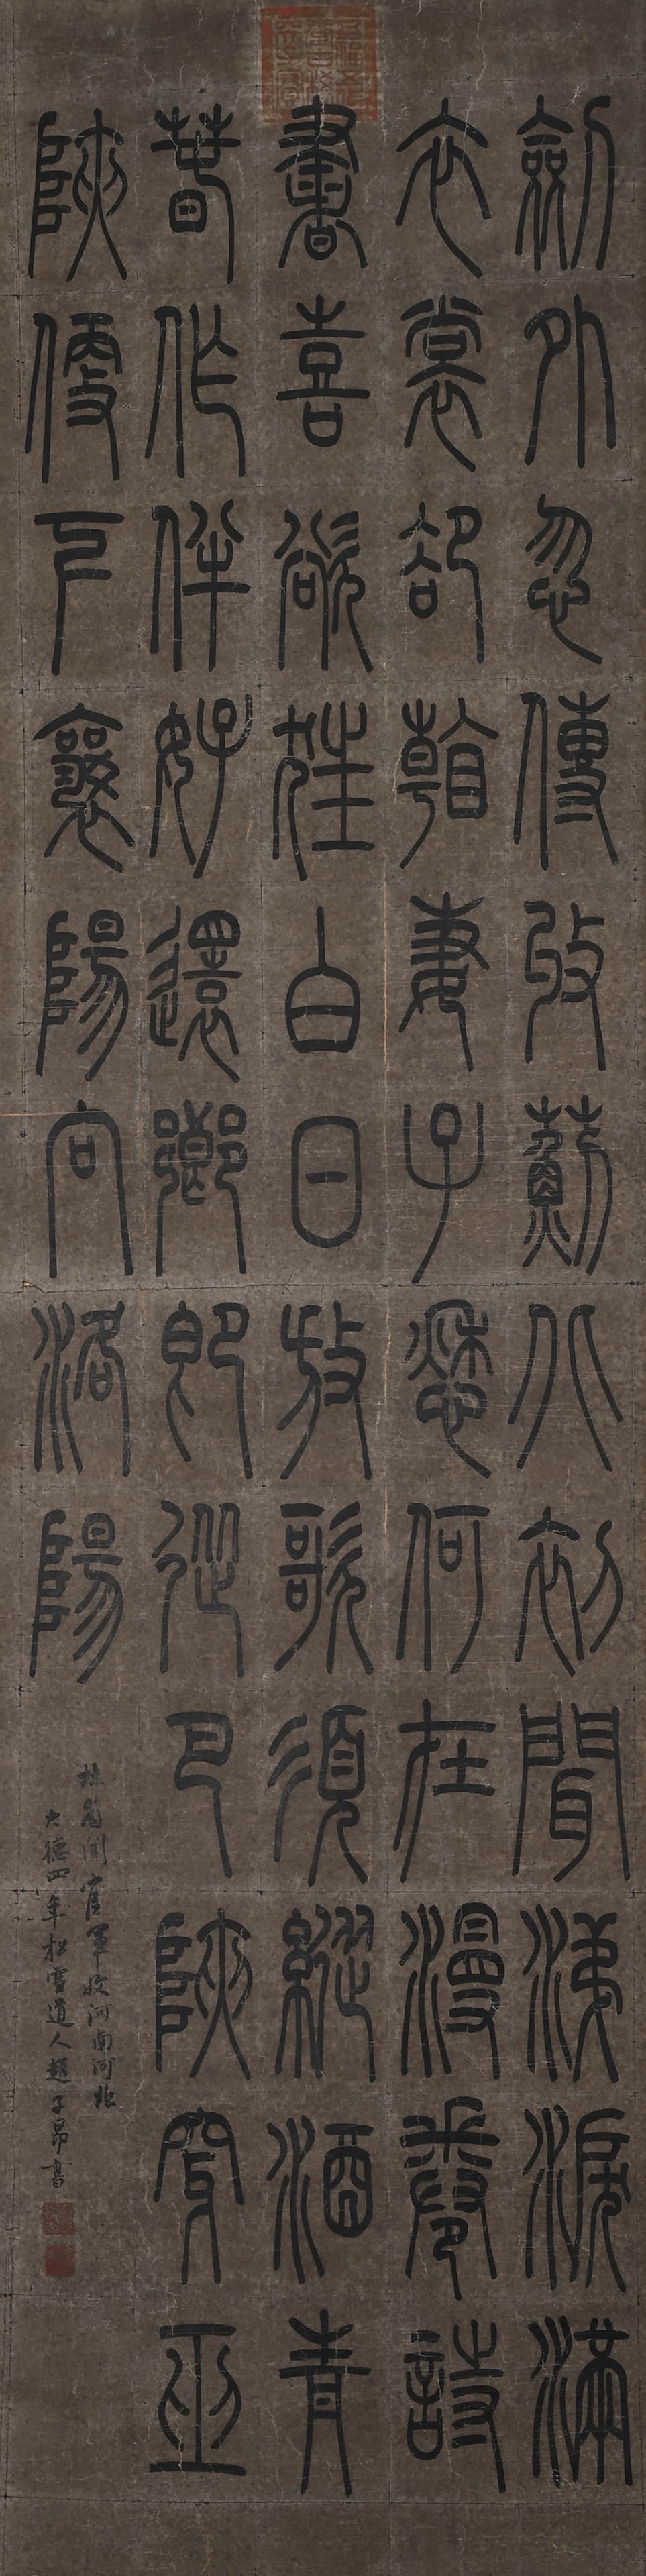 劍外忽傳收薊北初聞涕淚滿
衣裳卻看妻子愁何在漫卷詩
書喜欲狂白日放歌須縱酒青
春作伴好還鄉即從巴峽穿巫
峽便下襄陽向洛陽
杜甫聞官軍收河南河北
大德四年松雪道人趙子昂書